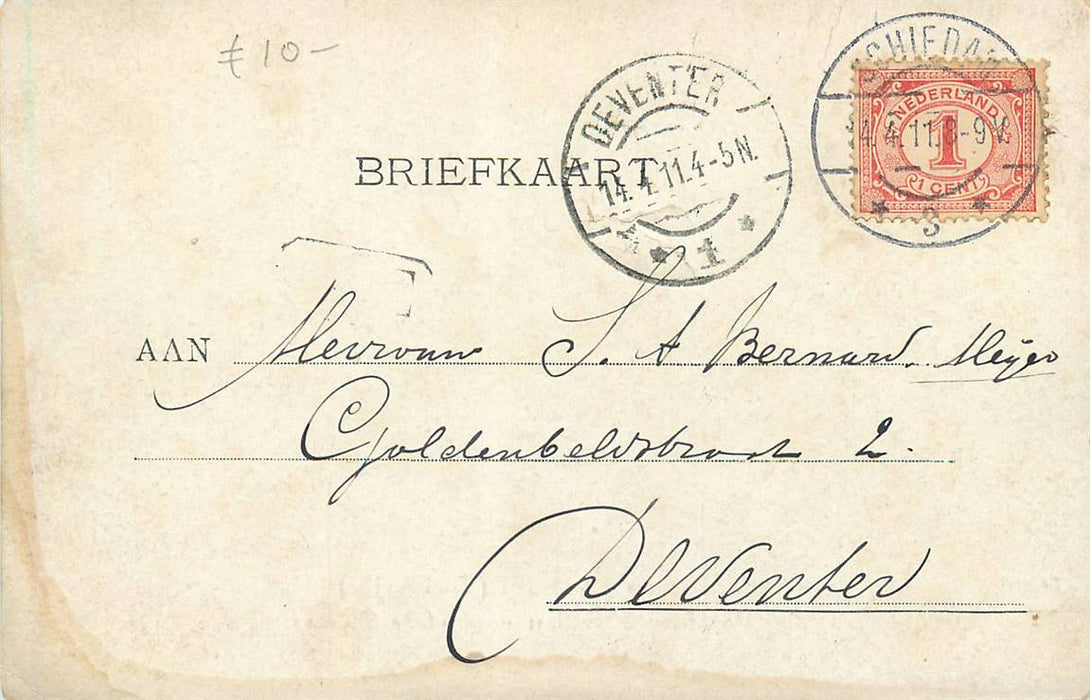 £ 10-
SCHIEDAM
4.11.8-9V.
3
NEDERLAND
1
1 CENT
DEVENTER
14.4.11.4-5N.
1
BRIEFKAART
AAN Mevrouw S. A Bernard. Meijer
2.
Deventer